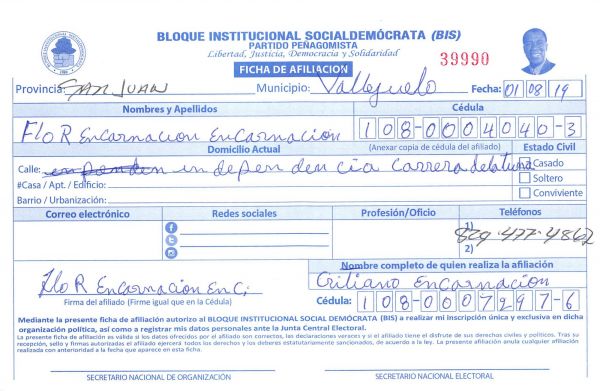 BLOQUE INSTITUCIONAL SOCIALDEMÓCRATA (BIS)
PARTIDO PEÑAGOMISTA
Libertad, Justicia, Democracia y Solidaridad
39990
FICHA DE AFILIACION
Provincia: SAN JUAN Municipio: Vallejuelo Fecha: 01 08 19
Nombres y Apellidos Cédula
Flo R EnCarnacion EnCarnacion 108-0004040-3
Domicilio Actual (Anexar copia de cédula del afiliado) Estado Civil
Calle: independencia Carrera de la tuna Casado
#Casa / Apt. / Edificio: Soltero
Barrio / Urbanización: Conviviente
Correo electrónico Redes sociales Profesión/Oficio Teléfonos
1) 829-477-4862
2)
Flo R EnCarnacion EnC; Nombre completo de quien realiza la afiliación
Firma del afiliado (Firme igual que en la Cédula) Critiano EnCarnación
Cédula: 108-0007297-6
Mediante la presente ficha de afiliación autorizo al BLOQUE INSTITUCIONAL SOCIAL DEMÓCRATA (BIS) a realizar mi inscripción única y exclusiva en dicha
organización política, así como a registrar mis datos personales ante la Junta Central Electoral.
La presente ficha de afiliación es válida si los datos ofrecidos por el afiliado son correctos, las declaraciones veraces y si el afiliado tiene el disfrute de sus derechos civiles y políticos. Tras su
recepción, sello y firmas autorizadas el afiliado ejercerá todos los derechos y los deberes estatutariamente sancionados, de acuerdo a la ley. La presente afiliación anula cualquier afiliación
realizada con anterioridad a la fecha que aparece en esta ficha.
SECRETARIO NACIONAL DE ORGANIZACIÓN SECRETARIO NACIONAL ELECTORAL